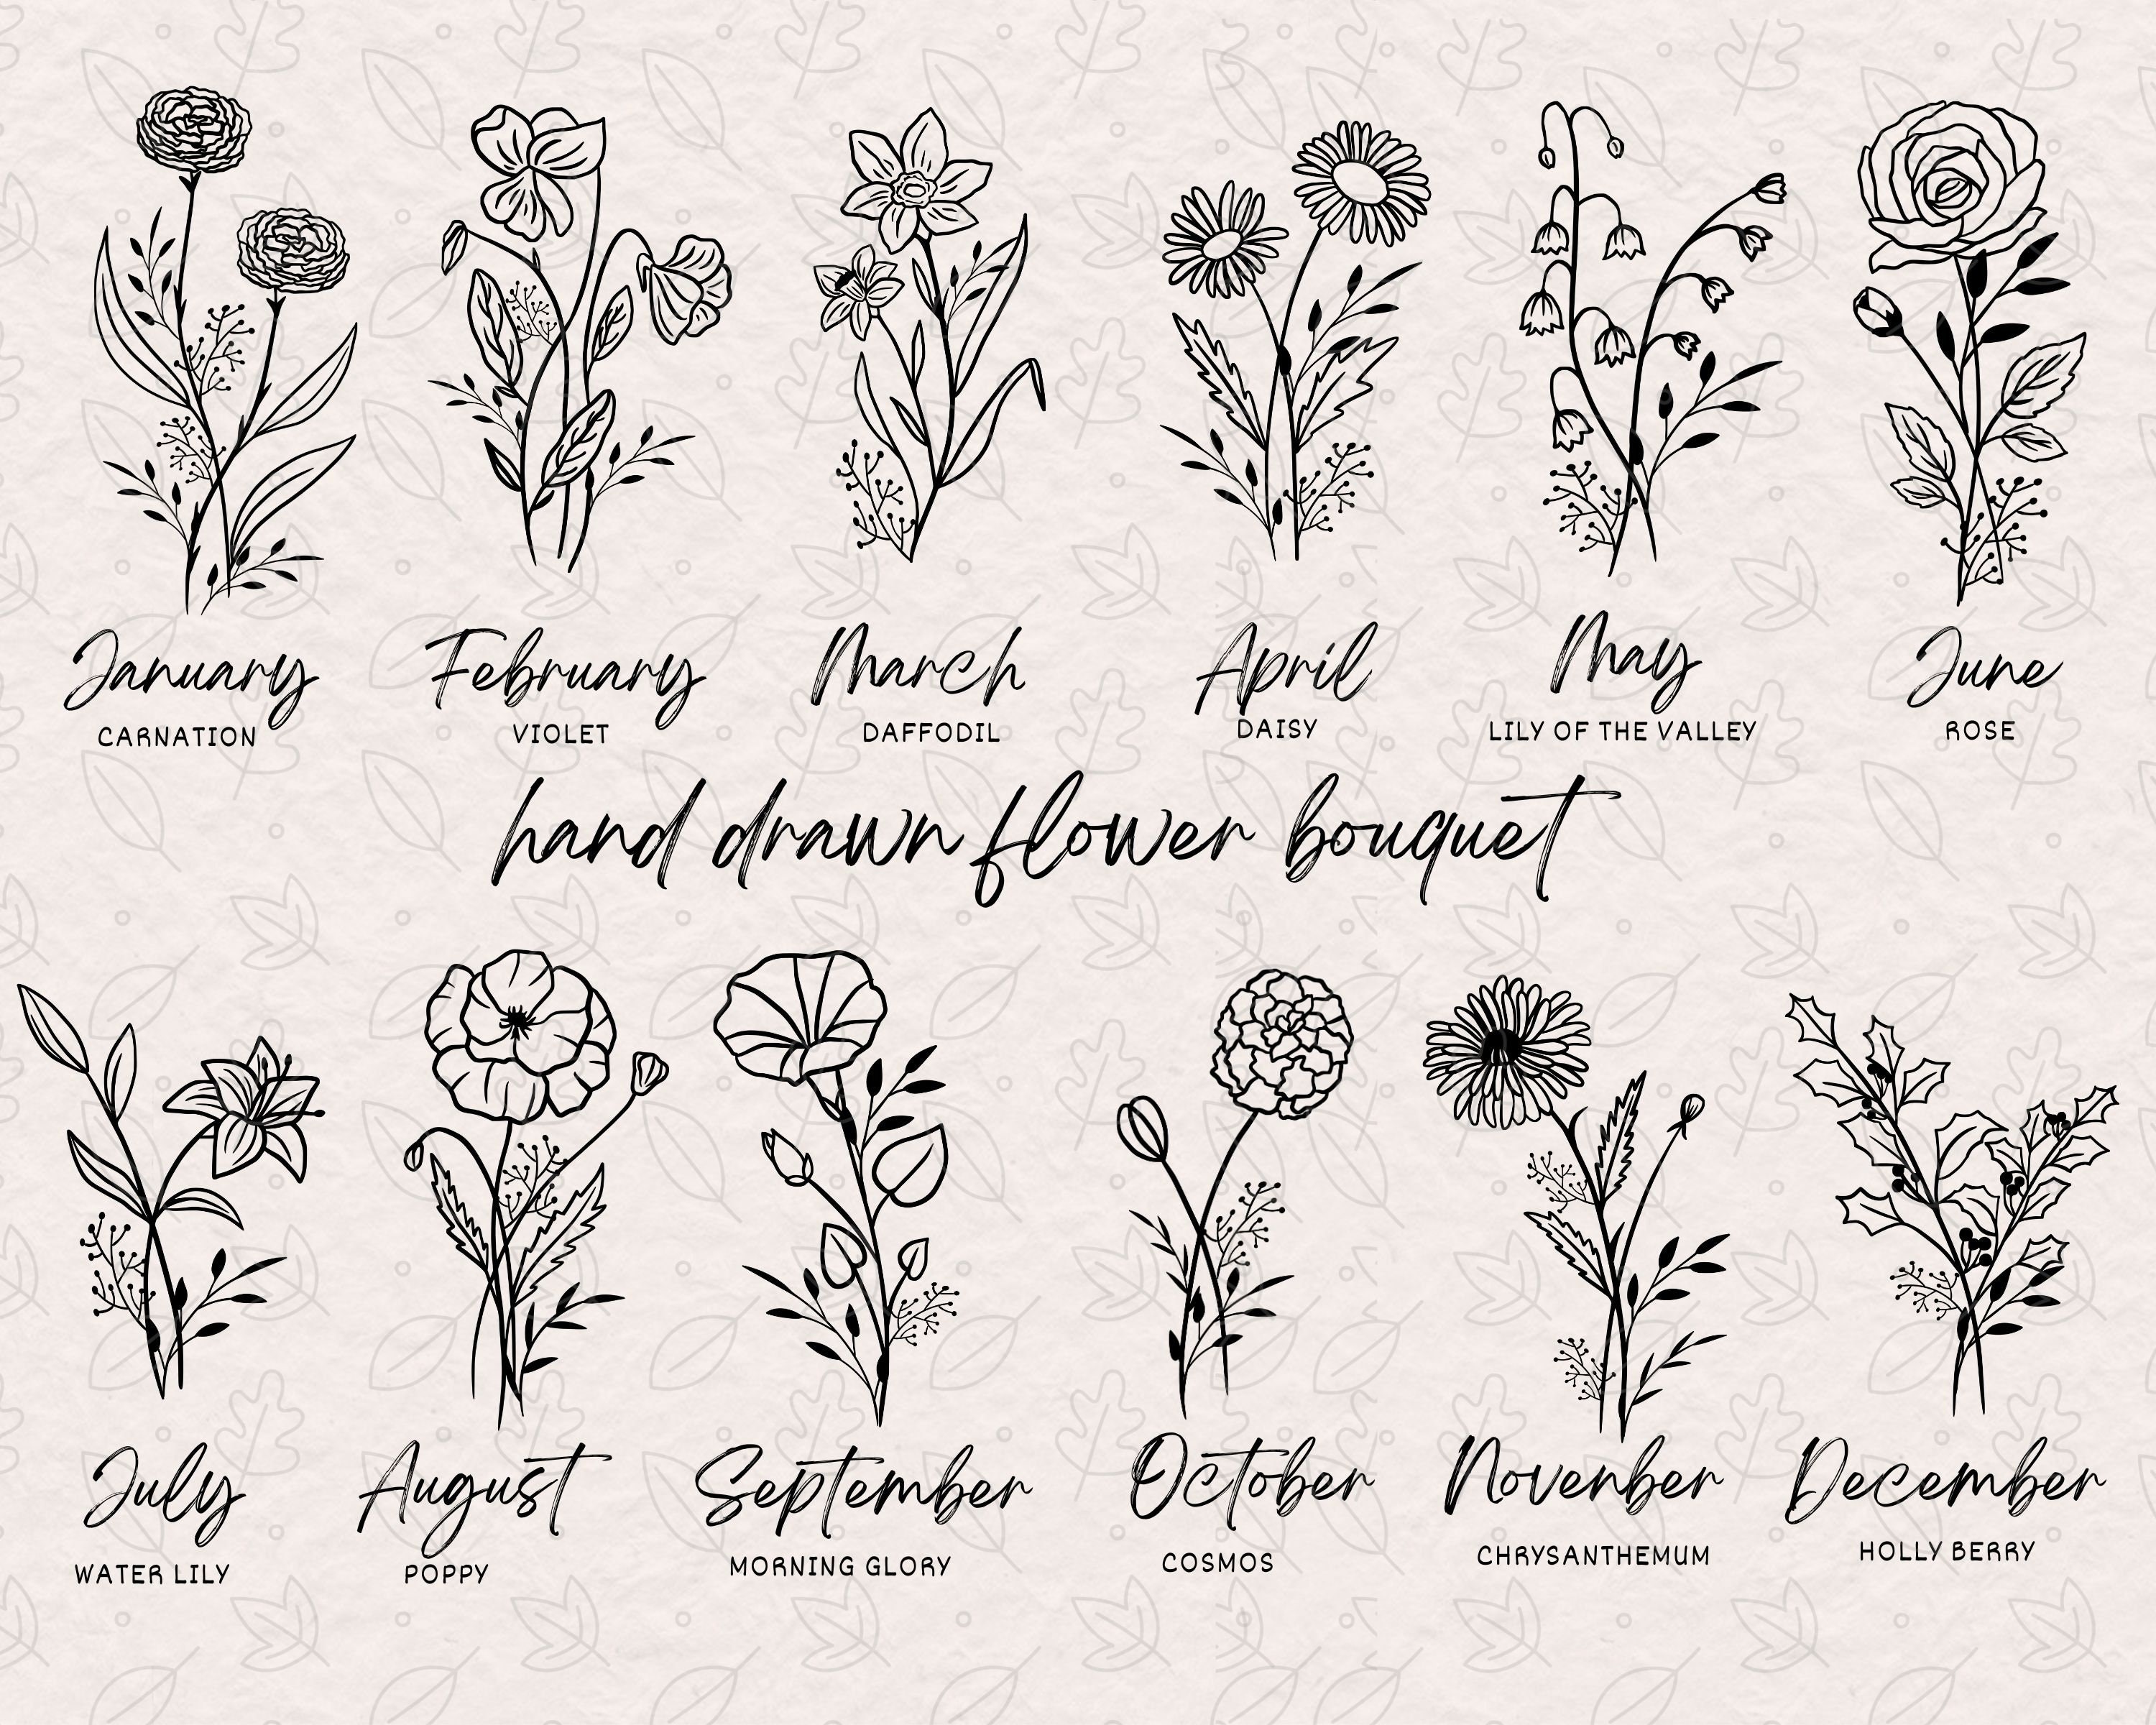 January
CARNATION
February
VIOLET
March
DAFFODIL
April
DAISY
May
LILY OF THE VALLEY
June
ROSE
hand drawn flower bouquet
July
WATER LILY
August
POPPY
September
MORNING GLORY
October
COSMOS
Novenber
CHRYSANTHEMUM
December
HOLLY BERRY